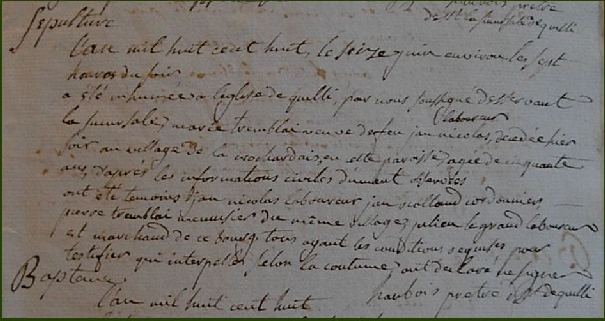 prêtre
de la succursale de quilli
Sepulture
L'an mil huit cent huit, le seize juin environ les sept
heures du soir
a été inhumée a l'église de quilli, par nous soussigné desservant
laboureur
la succursale, marie tremblai veuve de feu jan nicolas, decedée hier
soir au village de la crochardais, en cette paroisse, agée de cinquante
ans, d'apres les informations civiles dûment
ont été temoins jan nicolas laboureur jan cordonnier
pierre tremblai menuisier du même village, julien le grand laboureur
et marchand de ce bourg, tous ayant les conditions requises pour
testifier qui interpellés selon la coutume, ont declaré ne signer
Baptême
haubois prêtre de quilli
L'an mil huit cent huit